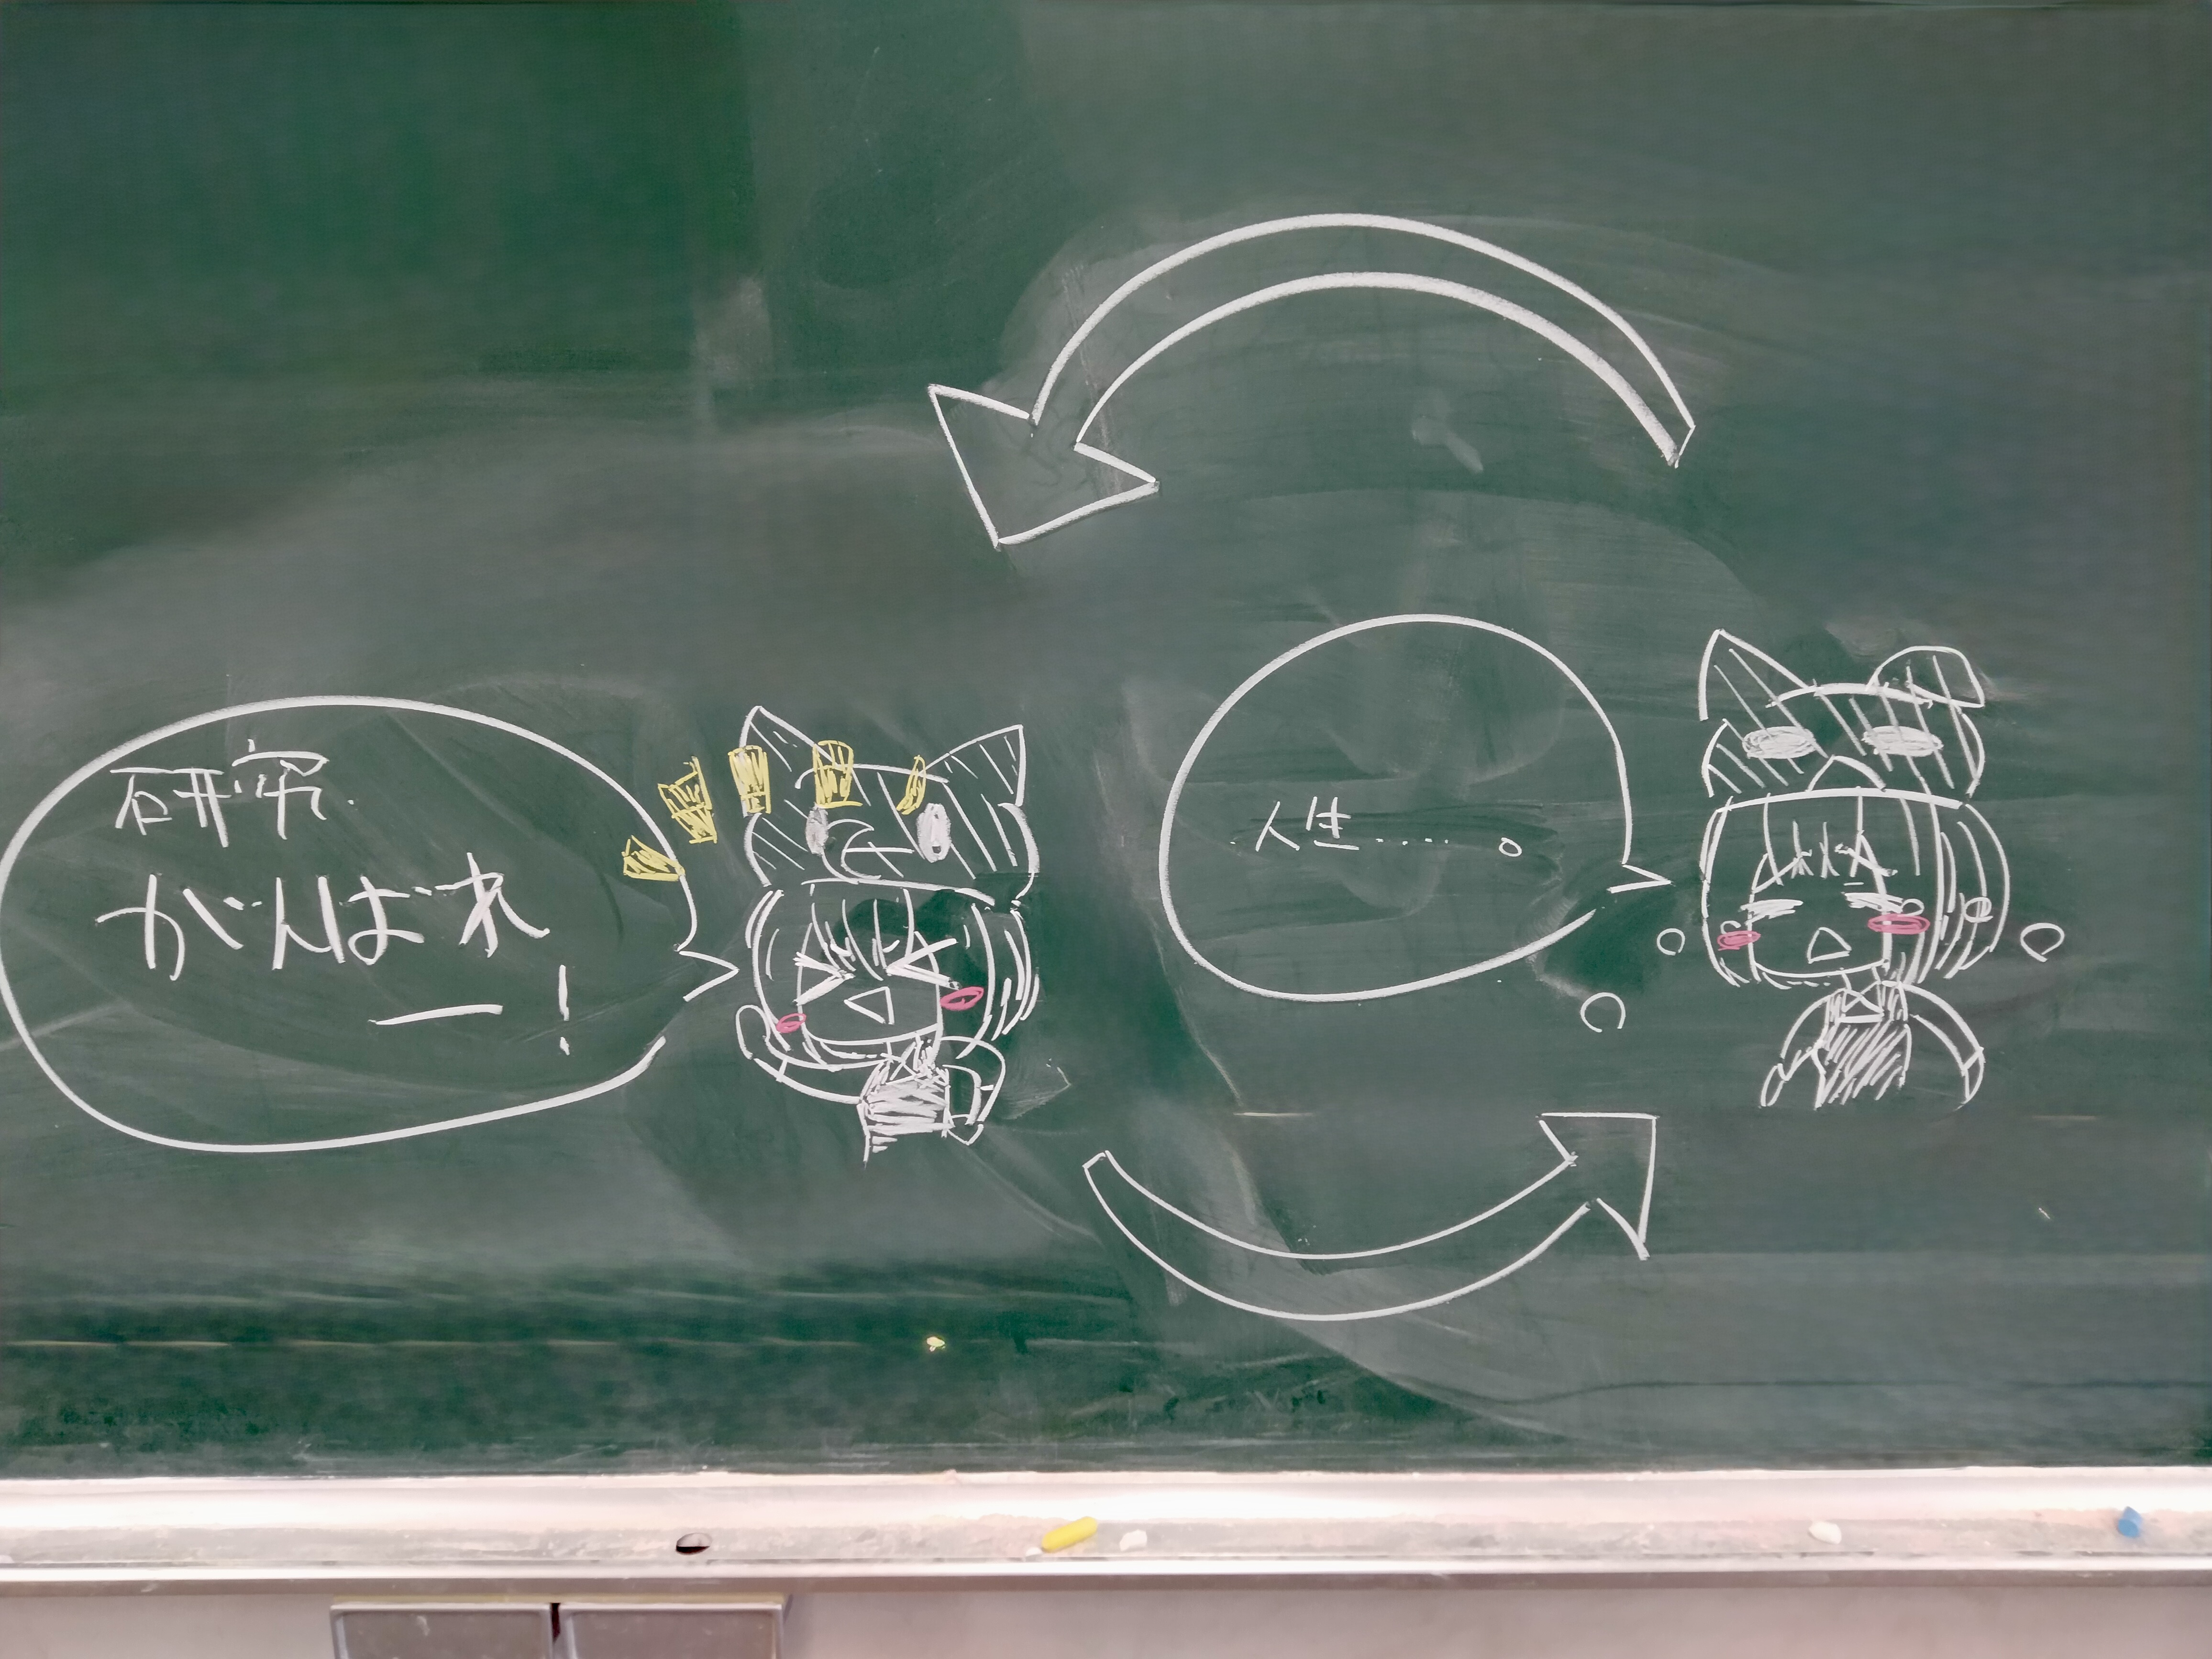 研究
がんばれ
ー!
人生……。